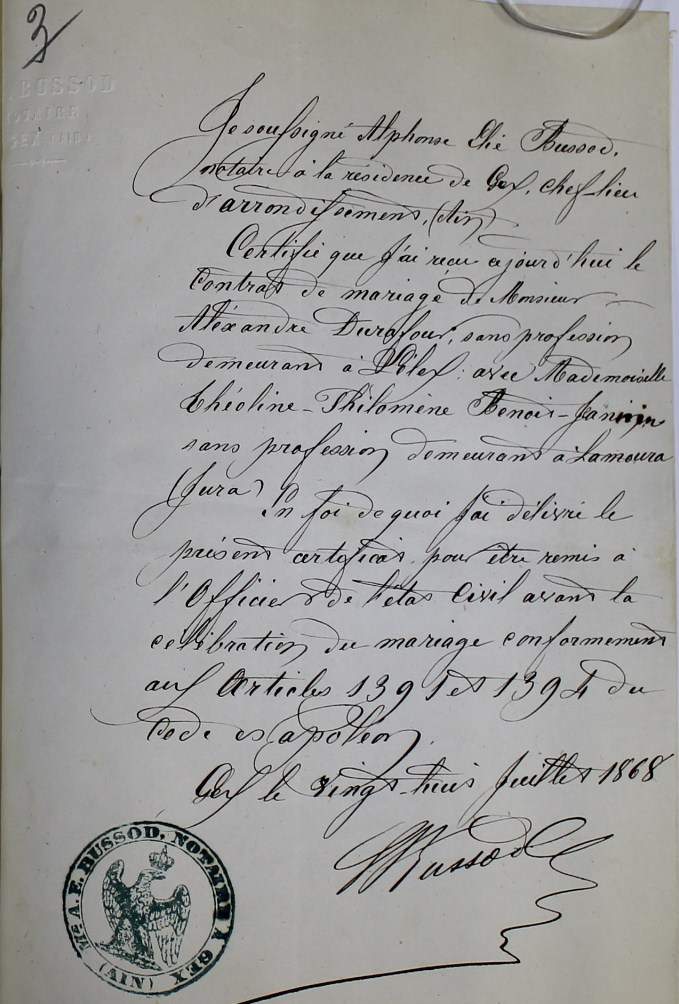 3
BUSSOD
NOTAIRE
GEX (AIN)
Je soussigné Alphonse Elié Bussod,
notaire à la résidence de Gex, chef-lieu
d'arrondissement, (Ain)
Certifie que j'ai reçu cejourd'hui le
Contrat de mariage de Monsieur
Aléxandre Durafour, sans profession
demeurant à : avec Mademoiselle
Théoline-Philomène Benoit-Janin
sans profession demeurant à Lamoura
(Jura)
En foi de quoi j'ai délivré le
présent certificat pour être remis à
l'Officier de l'état Civil avant la
celébration du mariage conformement
aux Articles 1391 et 1394 du
Code Napoléon.
Gex le vingt-huit Juillet 1868
Bussod
Me A. E. BUSSOD, NOTAIRE A GEX (AIN)